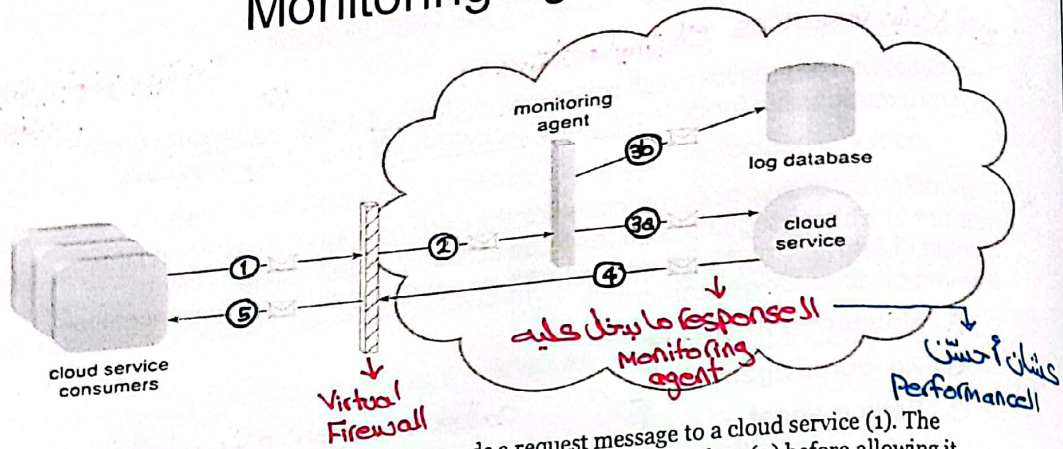 Monitoring
monitoring
agent
3b
log database
3a
cloud
service
2
1
4
5
cloud service
consumers
Virtual
Firewall
الـ response ما بيدخل عليه
Monitoring
agent
عشان أحسّن
الـ Performance
a request message to a cloud service (1). The
before allowing it